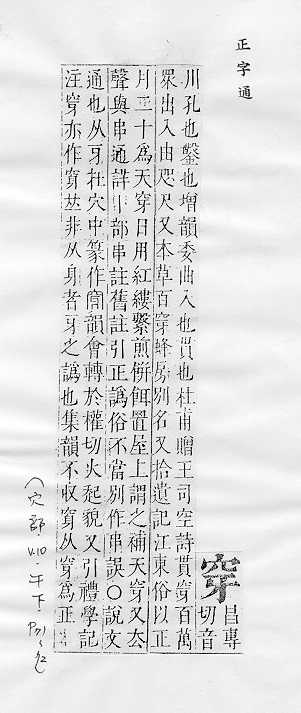 正字通
穿
昌專
切音
川孔也鑿也增韻委曲入也貫也杜甫贈王司空詩貫穿百萬
眾出入由咫尺又本草百穿蜂房別名又拾遺記江東俗以正
月二十爲天穿日用紅縷繫煎餅餌置屋上謂之補天穿又去
聲與串通詳丨部串註舊註引正譌俗不當別作串誤○說文
通也从牙在穴中篆作韻會轉於權切火起貌又引禮學記
注穿亦作𠀤非从身者牙之譌也集韻不收从穿爲正
(穴部 V.10-午下-P71~72)